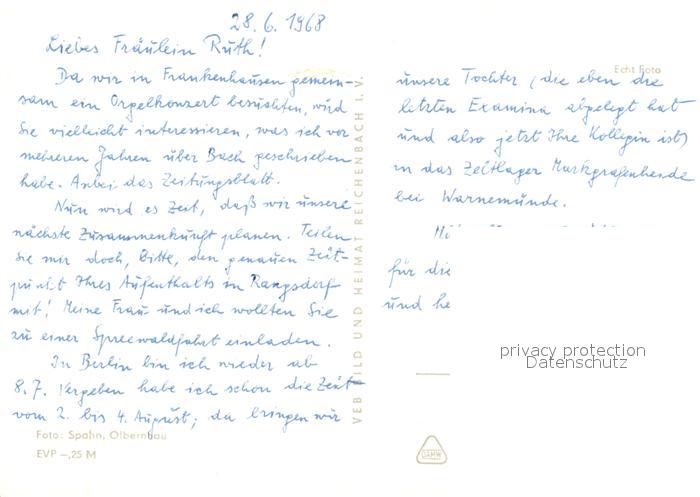 28.6.1968
Liebes Fräulein Ruth!
Da wir in Frankenhausen gemein-
sam ein Orgelkonzert besuchten, wird
Sie vielleicht interessieren, was ich vor
mehreren Jahren über Bach geschrieben
habe. Anbei das Zeitungsblatt.
Nun wird es Zeit, daß wir unsere
nächste Zusammenkunft planen. Teilen
Sie mir doch, bitte, den genauen Zeit-
punkt Ihres Aufenthalts in Rangsdorf
mit! Meine Frau und ich wollten Sie
zu einer Spreewaldfahrt einladen.
In Berlin bin ich wieder ab
8.7. Vergeben habe ich schon die Zeit
vom 2. bis 4. August; da bringen wir
Foto: Spahn, Olbernhau
EVP -,25 M
VEB BILD UND HEIMAT REICHENBACH I. V.
Echt Foto
unsere Tochter (die eben die
letzten Examina abgelegt hat
und also jetzt Ihre Kollegin ist)
in das Zeltlager Markgrafenheide
bei Warnemünde.
für die
und he
privacy protection
Datenschutz
DAMW